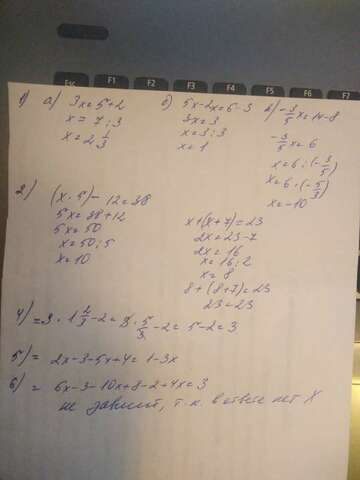 F1 F2 F3 F4 F5 F6 F7
1) а) 3x=5+2
x = 7:3
x = 2 1/3
б) 5x-2x=6-3
3x=3
x=3:3
x=1
в) -3/5 x = 14-8
-3/5 x = 6
x=6:(-3/5)
x=6·(-5/3)
x=-10
2) (x·5)-12=38
5x=38+12
5x=50
x=50:5
x=10
x+(x+7)=23
2x=23-7
2x=16
x=16:2
x=8
8+(8+7)=23
23=23
4) =3·1 2/3-2=3·5/3-2=5-2=3
5) = 2x-3-5x+4=1-3x
6) = 6x-3-10x+8-2+4x=3
не зависит, т.к. в ответе нет x